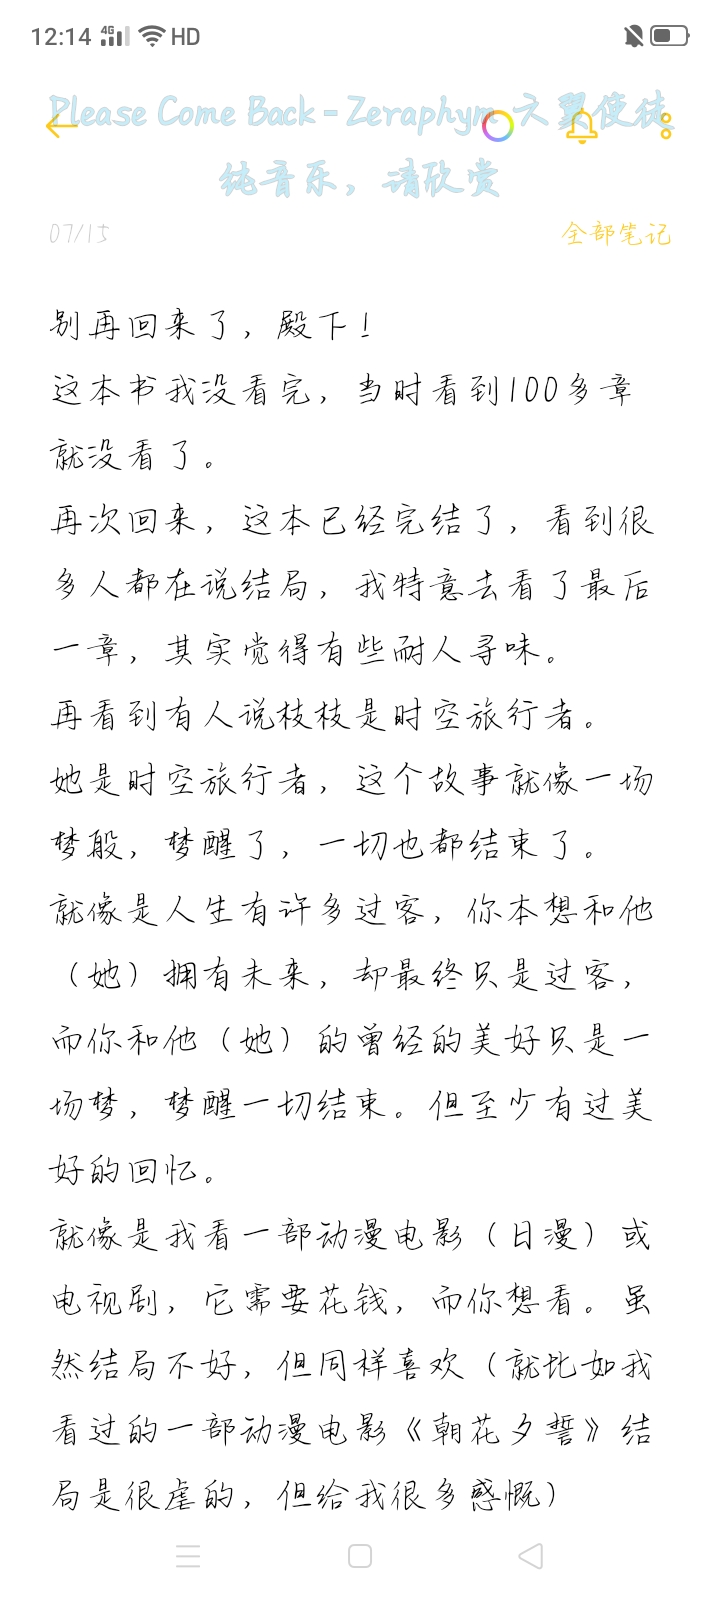 12:14 4G HD
Please Come Back - Zeraphym 六翼使徒
纯音乐，请欣赏
07/15 全部笔记
别再回来了，殿下！
这本书我没看完，当时看到100多章
就没看了。
再次回来，这本已经完结了，看到很
多人都在说结局，我特意去看了最后
一章，其实觉得有些耐人寻味。
再看到有人说枝枝是时空旅行者。
她是时空旅行者，这个故事就像一场
梦般，梦醒了，一切也都结束了。
就像是人生有许多过客，你本想和他
（她）拥有未来，却最终只是过客，
而你和他（她）的曾经的美好只是一
场梦，梦醒一切结束。但至少有过美
好的回忆。
就像是我看一部动漫电影（日漫）或
电视剧，它需要花钱，而你想看。虽
然结局不好，但同样喜欢（就比如我
看过的一部动漫电影《朝花夕誓》结
局是很虐的，但给我很多感慨）